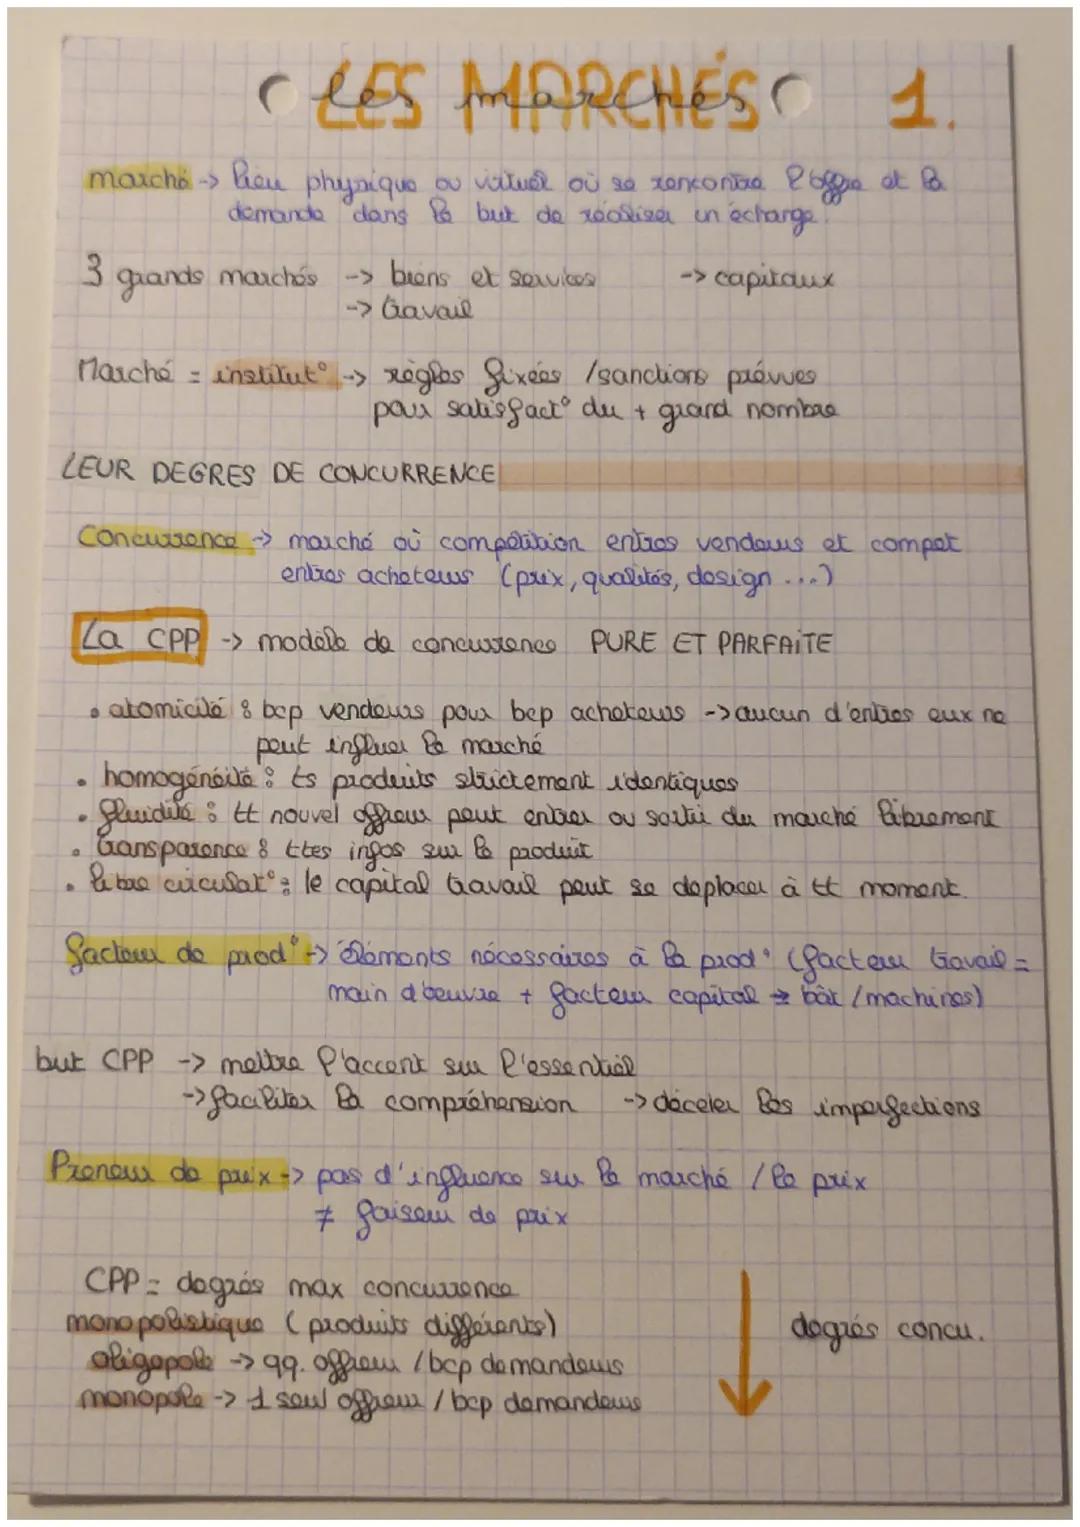 LES MARCHÉS 1.
les marchés
marché -> lieu physique ou virtuel où se rencontre l'offre et la
demande dans le but de réaliser un échange.
3 grands marchés -> biens et services -> capitaux
-> travail
Marché = institut° -> règles fixées / sanctions prévues
pour satisfact° du + grand nombre
LEUR DEGRES DE CONCURRENCE
Concurrence -> marché où compétition entres vendeurs et compet
entres acheteurs (prix, qualités, design ...)
La CPP -> modèle de concurrence PURE ET PARFAITE
• atomicité : bcp vendeurs pour bcp acheteurs -> aucun d'entres eux ne
peut influer le marché
• homogénéité : ts produits strictement identiques
• fluidité : tt nouvel offreur peut entrer ou sortir du marché librement
• transparence : ttes infos sur le produit
• libre circulat° : le capital travail peut se deplacer à tt moment.
facteur de prod° -> éléments nécessaires à la prod° (facteur travail =
main d'oeuvre + facteur capital => bât / machines)
but CPP -> mettre l'accent sur l'essentiel
-> faciliter la compréhension -> déceler les imperfections
Preneur de prix -> pas d'influence sur le marché / le prix
≠ faiseur de prix
CPP = degrés max concurrence
monopolistique (produits différents) degrés concu.
oligopole -> qq. offreur / bcp demandeurs
monopole -> 1 seul offreur / bcp demandeurs